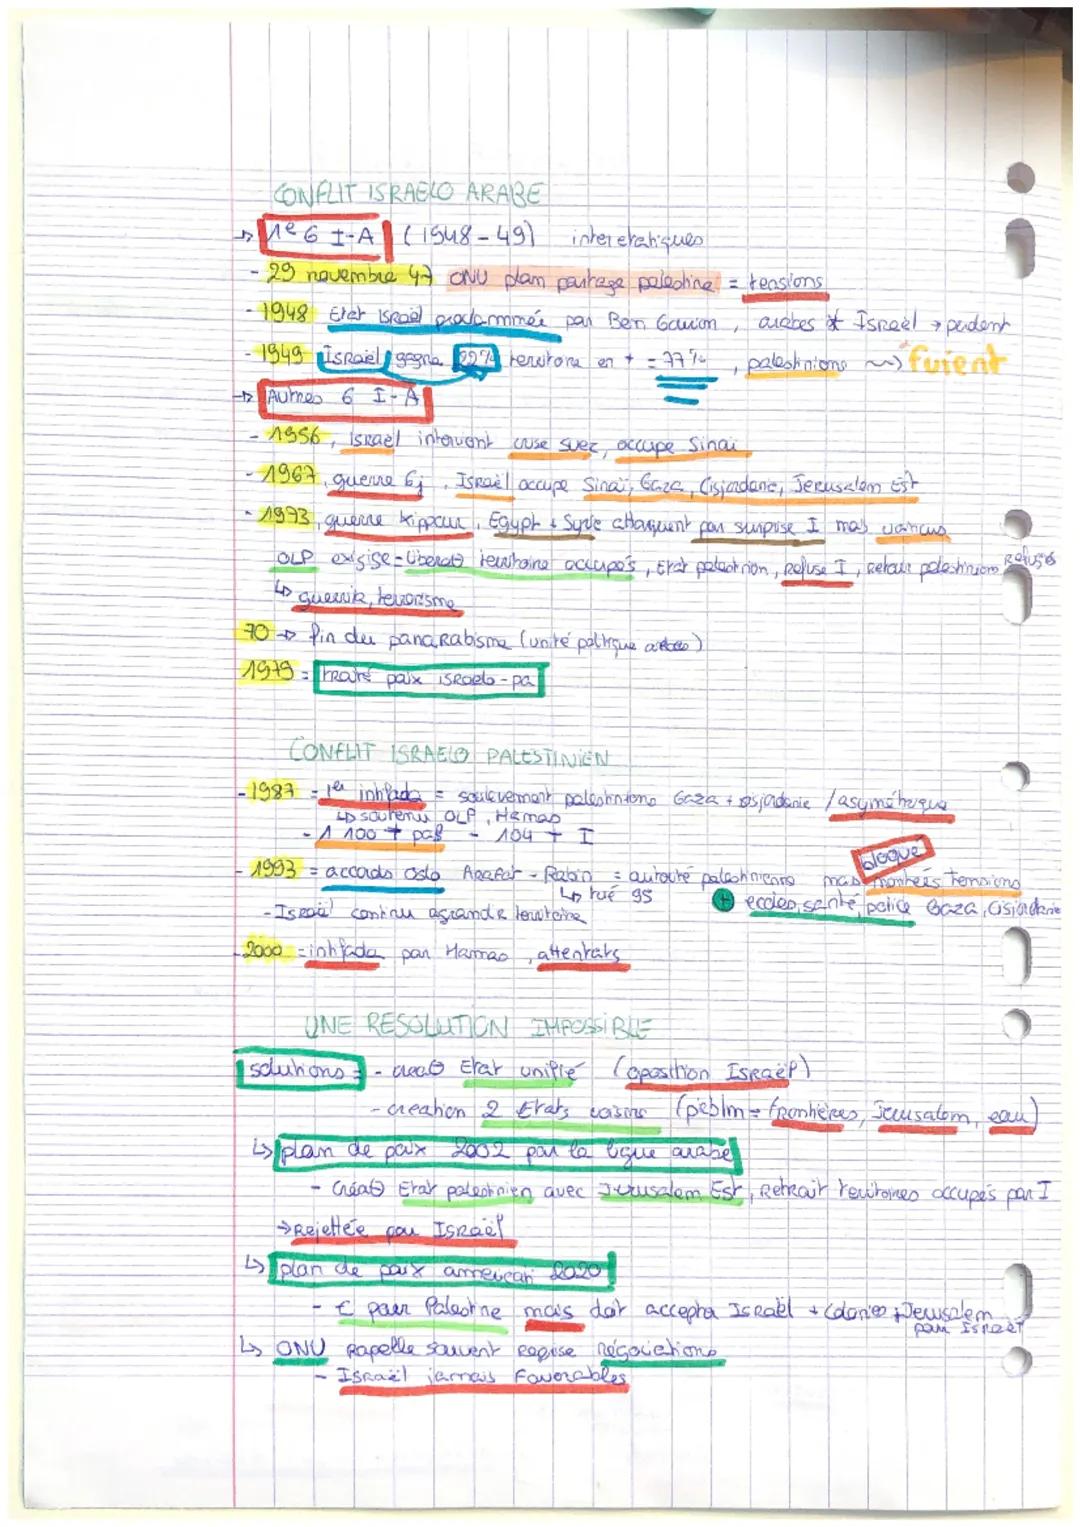 CONFLIT ISRAELO ARABE
→ 1e G I-A (1948-49) interetatiques
- 29 novembre 47 ONU plan partage palestine = tensions
- 1948 Etat israël proclammée par Ben Gourion, arabes ≠ Israël → perdent
- 1949 Israël gagne 22% territoire en + = 77%, palestiniens ~> fuient
→ Autres G I-A
- 1956, israël intervient crise suez, occupe Sinaï
- 1967, guerre 6j, Israël occupe Sinaï, Gaza, Cisjordanie, Jerusalem Est
- 1973, guerre kippour, Egypt + Syrie attaquent par surprise I mais vaincus
OLP exisise = liberat° territoire occupés, Etat palestinien, refuse I, retour palestiniens Refugiés
↳ guerrilla, terrorisme
70 → fin du panarabisme (unité politique arabe)
1979 = traité paix israelo-pa
CONFLIT ISRAELO PALESTINIEN
- 1987 = 1er intifada = soulevement palestiniens Gaza + cisjordanie / asymétrique
↳ soutenu OLP, Hamas
- 1 100 + pal - 164 + I
bloqué
- 1993 = accords oslo Arafat - Rabin = autorité palestinienne mais montées tensions
↳ tué 95 + ecoles, santé, police Gaza, Cisjordanie
- Israël continu agrandir territoire
- 2000 = intifada par Hamas, attentats
UNE RESOLUTION IMPOSSIBLE
solutions = - creat° Etat unifié (oposition Israël)
- creation 2 Etats voisins (pbblm = frontières, Jerusalem, eau)
↳ plan de paix 2002 par la ligue arabe
- Créat° Etat palestinien avec Jerusalem Est, Retrait territoires occupés par I
→ Rejettée par Israël
↳ plan de paix americain 2020
- € pour Palestine mais doit accepter Israël + colonies + Jerusalem
pour Israël
↳ ONU rapelle souvent reprise négociations
- Israël jamais favorables